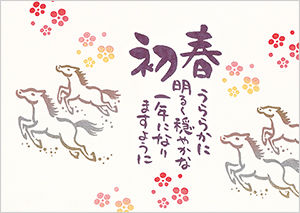 初春
うららかに
明るく穏やかな
一年になり
ますように